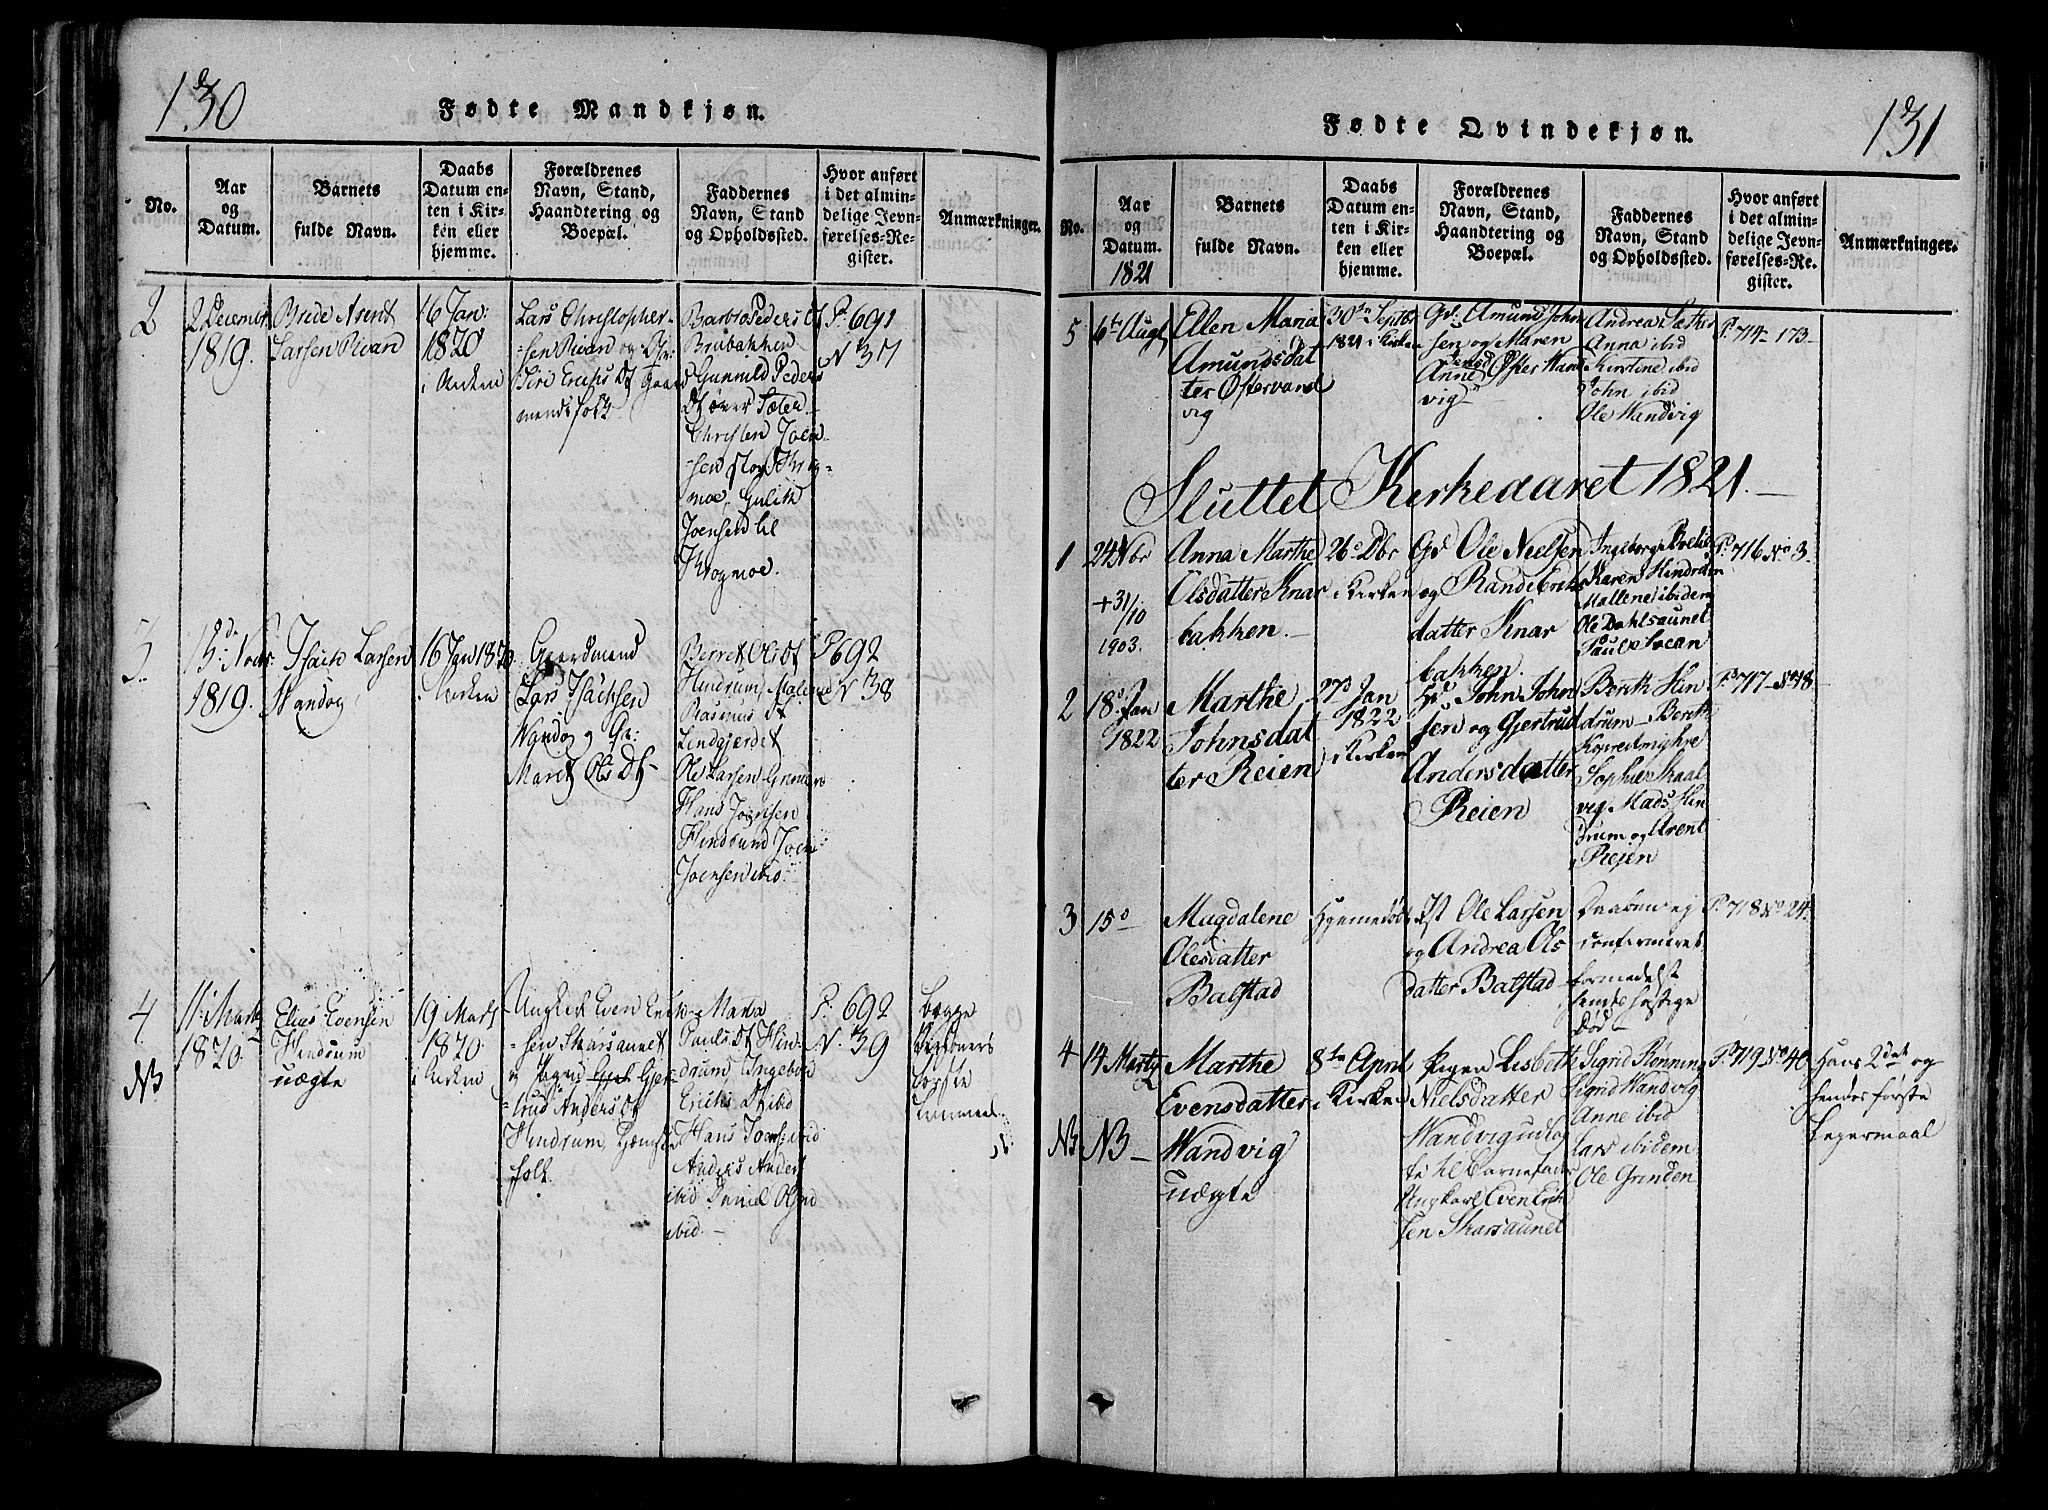 130
Fødte Mandkjøn.
No.
Aar
og
Datum.
Barnets
fulde Navn.
Daabs
Datum en-
ten i Kir-
ken eller
hjemme.
Forældrenes
Navn, Stand,
Haandtering og
Boepæl.
Faddernes
Navn, Stand
og Opholdssted.
Hvor anført
i det almin-
delige Jevn-
førelses-Re-
gister.
Anmærkninger.
2
2 Decemr
1819.
Brede Arent
Larsen Rivan
16 Jan:
1820
i Kirken
Lars Christopher-
sen Rivan og
Siri Erichs Dt
mendsfolk
Barbro Peders Dt
Brubakken
Gunnild Peders
Dt over Sæter
Christen Joen-
sen stor Krog-
moe,
Joensen lil
Krogmoe.
P. 691
N 37
3.
13de Novbr
1819.
Isach Larsen
Wandog
16 Jan 1820
i Kirken
Gaardmand
Lars Isachsen
Wandog og
Marit Ols Dt
Berret Ols Dt
Hindrum, Malene
Rasmus Dt
Lindgjerdet
Ole Larsen
Hans Joensen
Hindrum Joen
Joensen ibid.
P 692
N 38
4
NB
11 Marty
1820
Elias Evensen
Hindrum
uægte
19 Marts
1820
i Kirken
Ungkarl Even Erich-
sen Skarsaunet
og Pigen Gjer-
trud Anders Dt
Hindrum,
folk
Maria
Pauls Dt Hin-
drum, Ingebor
Erichs Dt ibid
Hans Joens: ibid
Anders Anders
ibid. Daniel Olsen
ibid.
P. 692
N. 39
begge
Personers
første
131
Fødte Qvindekjøn.
No.
Aar
og
Datum.
1821
Barnets
fulde Navn.
Daabs
Datum en-
ten i Kir-
ken eller
hjemme.
Forældrenes
Navn, Stand,
Haandtering og
Boepæl.
Faddernes
Navn, Stand
og Opholdssted.
Hvor anført
i det almin-
delige Jevn-
førelses-Re-
gister.
Anmærkninger.
5
6te Augt
Ellen Maria
Amundsdat
ter Østervand
vig
30te Septbr
1821 i Kirken
Gd. Amund John
sen og Maren
Anne Øster Wand
vig
Andrea Sæther
Anna ibid
Kirstine ibid
John ibid
Ole Wandvig
P. 714 - 173
Sluttet Kirkeaaret 1821.
1
24 Nbr
+ 31/10
1903.
Anna Marthe
Olsdatter Knar
bakken.
26o Dbr
i Kirken
Gd Ole Nielsen
og Randi Erichs
datter Knar
bakken
Karen Hindrum
Mallene ibidem
Ole Dahlsaunet
P. 716 No 3
2
18o Jan
1822
Marthe
Johnsdat
ter Reien
27o Jan
1822
i Kirken
Gd John John
sen og Gjertrud
Andersdatter
Reien
Bereth Hin
drum - Bereth
Sophie Skaal
vig. Mads Hin
drum og Arent
Reien
P. 717 - No 18
3
15o
Magdalene
Olesdatter
Balstad
Hjemedøbt
Ole Larsen
og Andrea Ols
datter Balstad
Daaben ej
confirmeret
formedelst
hastige
Død
P. 718 No 24
4
NB
14 Marty
NB
Marthe
Evensdatter
Wandvig
uægte
8de April
i Kirken
Pigen Lisbeth
Nielsdatter
Wandvig udlag
te til Barnefader
Ungkarl Even Erich
sen Skarsaunet
Sigrid Rønning
Sigrid Wandvig
Anne ibid
Lars ibidem
Ole Grinden
P. 719 No 40
Hans 2det og
hendes første
Legermaal